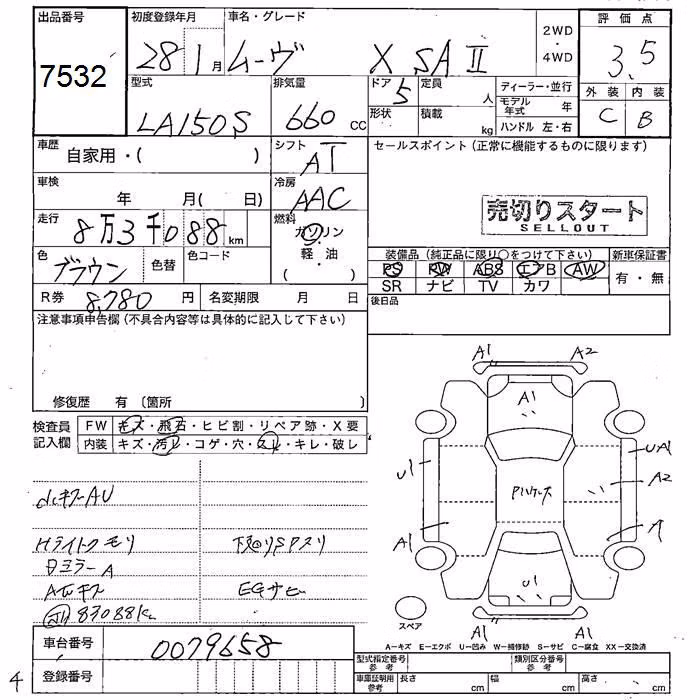 出品番号
7532
初度登録年月
28 1 月
車名・グレード
ムーヴ X SAⅡ
2WD
・
4WD
評価点
3.5
外装 内装
C B
型式
LA150S
排気量
660 CC
ドア
5
定員
人
形状
積載
kg
ディーラー・並行
モデル年式 年
ハンドル 左・右
車歴
自家用・( )
シフト
AT
セールスポイント(正常に機能するものに限ります)
車検
年 月( 日)
冷房
AAC
売切りスタート
SELLOUT
走行
8万3千088 km
燃料
ガソリン
・
軽・油
( )
色
ブラウン
色替
色コード
装備品(純正品に限り○をつけて下さい)
新車保証書
PS PW ABS エアB AW
SR ナビ TV カワ
有・無
R券
8,780 円
名変期限 月 日
後日品
注意事項申告欄(不具合内容等は具体的に記入して下さい)
修復歴 有(箇所 )
検査員
記入欄
FW キズ・飛石・ヒビ割・リペア跡・X要
内装 キズ・汚れ・コゲ・穴・スレ・キレ・破レ
Hライトクモリ
AWキズ
83088km
EGサビ
A1 A2
A1
U1
UA1
A2
A1
U1
A1 A1
スペア
A-キズ E-エクボ U-凹み W-補修跡 S-サビ C-腐食 XX-交換済
車台番号
0079658
登録番号
型式指定番号
参考
類別区分番号
参考
車庫証明用
参考
長さ cm
幅 cm
高さ cm
4